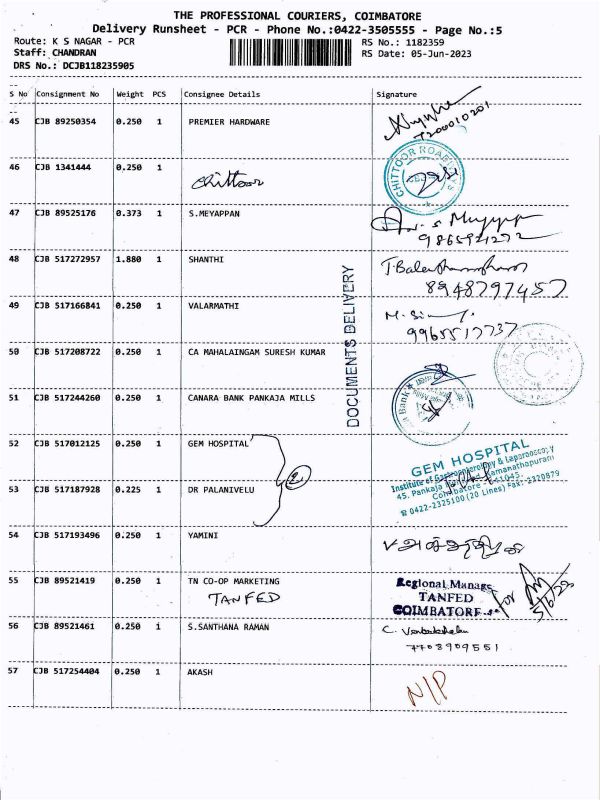 THE PROFESSIONAL COURIERS, COIMBATORE
Delivery Runsheet - PCR - Phone No.:0422-3505555 - Page No.:5
Route: K S NAGAR - PCR RS No.: 1182359
Staff: CHANDRAN RS Date: 05-Jun-2023
DRS No.: DCJB118235905
S No Consignment No Weight PCS Consignee Details Signature
45 CJB 89250354 0.250 1 PREMIER HARDWARE
7200010201
46 CJB 1341444 0.250 1 Chittoor
CHITTOOR ROADLINES
47 CJB 89525176 0.373 1 S.MEYAPPAN
48 CJB 517272957 1.880 1 SHANTHI
8948797457
49 CJB 517166841 0.250 1 VALARMATHI
9965517737
DOCUMENTS DELIVERY
50 CJB 517208722 0.250 1 CA MAHALAINGAM SURESH KUMAR
51 CJB 517244260 0.250 1 CANARA BANK PANKAJA MILLS
52 CJB 517012125 0.250 1 GEM HOSPITAL
2
53 CJB 517187928 0.225 1 DR PALANIVELU
GEM HOSPITAL
Institute of Gastroenterology & Laparoscopy
45, Pankaja Ramanathapuram
Coimbatore - 641045.
☎ 0422-2325100 (20 Lines) Fax: 2320879
54 CJB 517193496 0.250 1 YAMINI
55 CJB 89521419 0.250 1 TN CO-OP MARKETING
TANFED
Regional Manage
TANFED
COIMBATORE
for
5/6/23
56 CJB 89521461 0.250 1 S.SANTHANA RAMAN
7708909551
57 CJB 517254404 0.250 1 AKASH
N/P